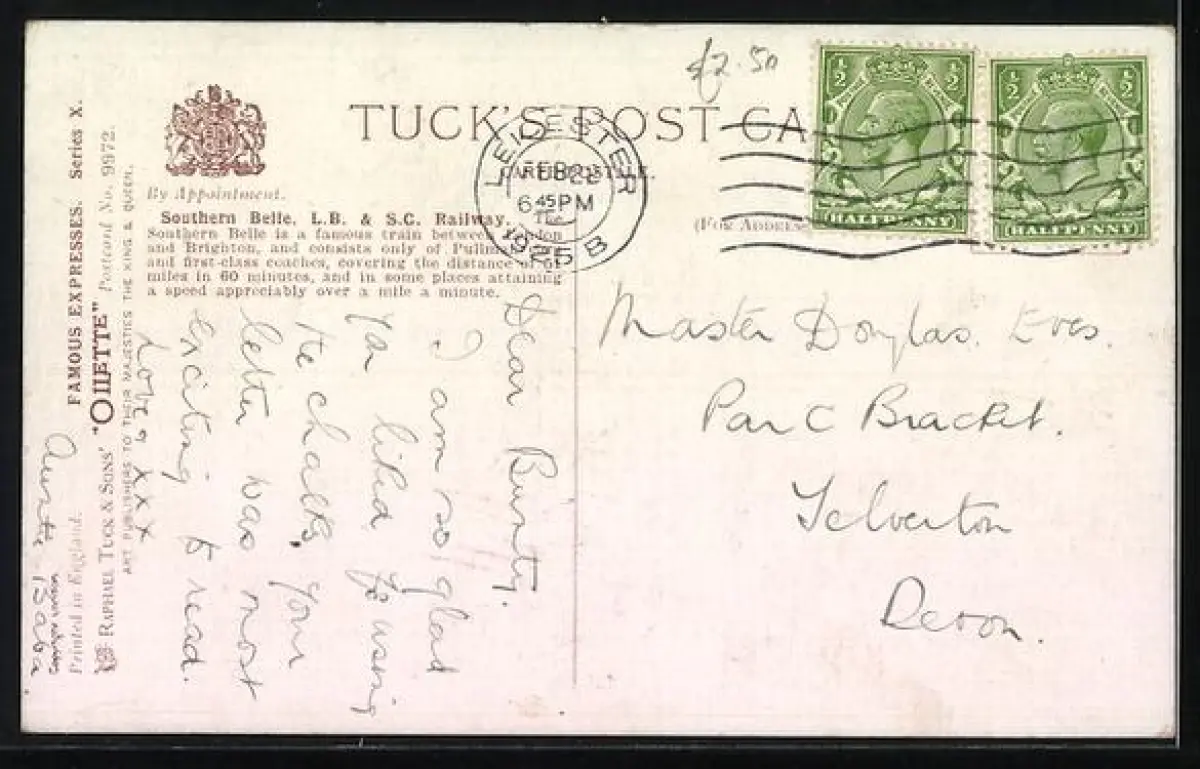 £2.50
TUCK'S POST CA
By Appointment.
(FOR ADDRESS
Southern Belle, L.B. & S.C. Railway. The
Southern Belle is a famous train between London
and Brighton, and consists only of Pullman
and first-class coaches, covering the distance of
miles in 60 minutes, and in some places attaining
a speed appreciably over a mile a minute.
LEICESTER
FEB 22
6 45 PM
1925 B
½ ½
HALFPENNY
½ ½
HALFPENNY
FAMOUS EXPRESSES. Series X.
RAPHAEL TUCK & SONS' "OILETTE" Postcard No. 9972.
ART PUBLISHERS TO THEIR MAJESTIES THE KING & QUEEN.
Printed in England.
Dear Bunty.
I am so glad
you liked using
the chalks, your
letter was most
exciting to read.
Love & xxx
Auntie
Baba.
Master Douglas. Eves.
Parc Bracket.
Yelverton
Devon.